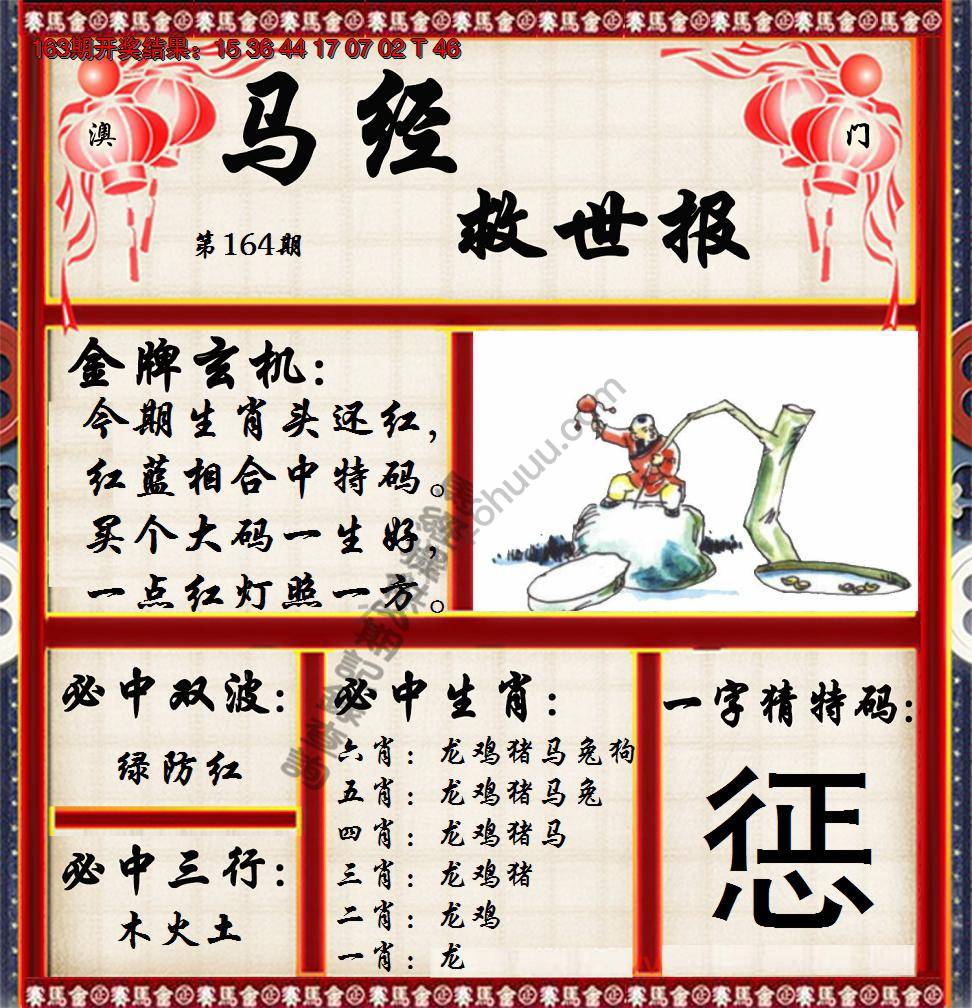 163期开奖结果：15 36 44 17 07 02 T 46
澳
门
马经
救世报
第164期
金牌玄机：
今期生肖头还红，
红蓝相合中特码。
买个大码一生好，
一点红灯照一方。
必中双波：
绿防红
必中三行：
木火土
必中生肖：
六肖：龙鸡猪马兔狗
五肖：龙鸡猪马兔
四肖：龙鸡猪马
三肖：龙鸡猪
二肖：龙鸡
一肖：龙
一字猜特码：
惩